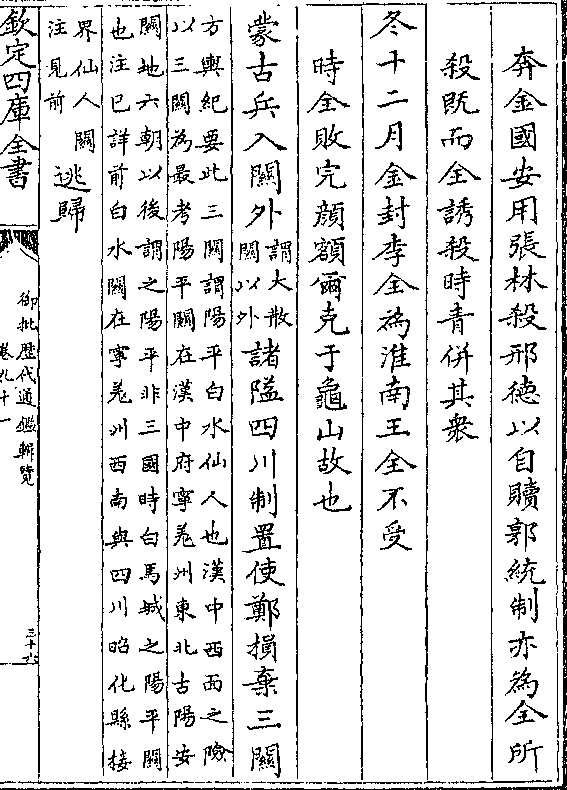 奔金國安用張林殺邢德以自贖郭統制亦為全所
殺既而全誘殺時青併其衆
冬十二月金封李全為淮南王全不受
時全敗完顔額爾克于龜山故也
蒙古兵入關外謂大散關以外諸隘四川制置使鄭損棄三關
方輿紀要此三關謂陽平白水仙人也漢中西面之險
以三關為最考陽平關在漢中府寧羌州東北古陽安
關地六朝以後謂之陽平非三國時白馬城之陽平關
也注已詳前白水關在寧羌州西南與四川昭化縣接
界仙人關
注見前
逃歸
欽定四庫全書
御批歴代通鑑輯覽
卷九十一
三十六